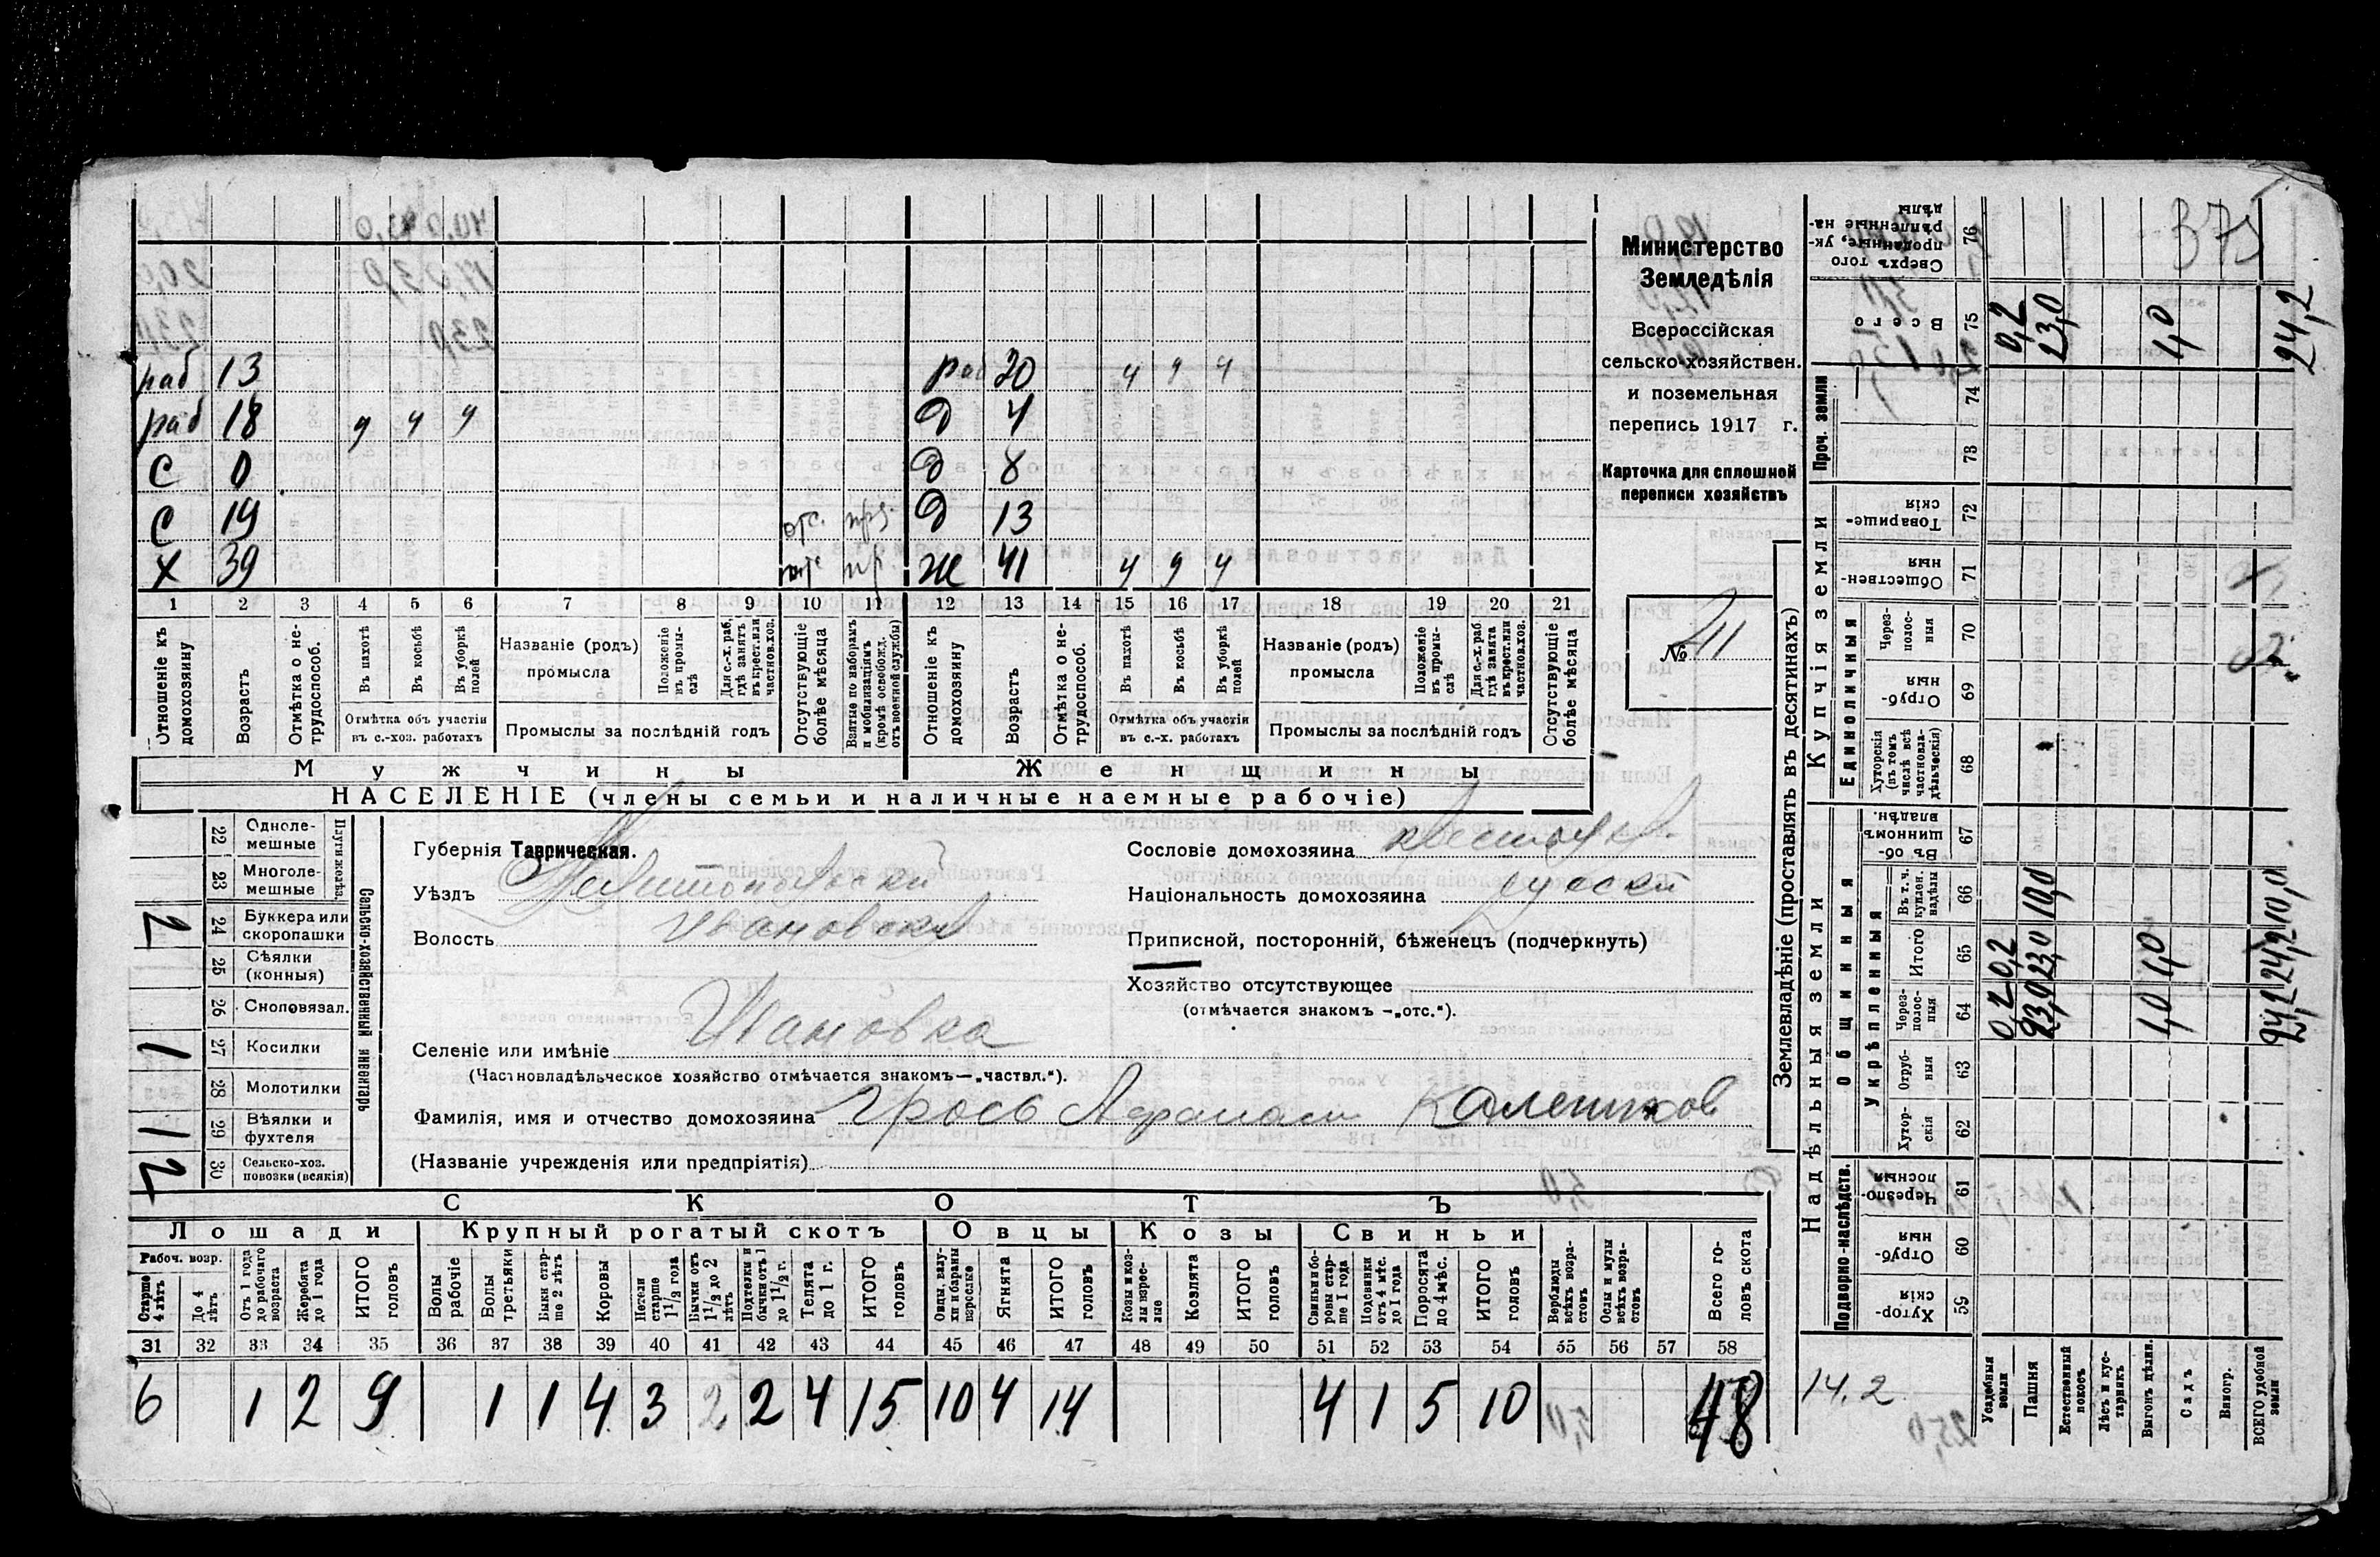 раб 13 раб 20 ч ч ч
раб 18 ч ч ч Д 4
С 0 Д 8
С 19 отс. Д 13
Х 39 Ж 41 ч ч ч
1 2 3 4 5 6 7 8 9 10 11 12 13 14 15 16 17 18 19 20 21
Отношеніе къ домохозяину
Возрастъ
Отмѣтка о не-трудоспособ.
Въ пахотѣ
Въ косьбѣ
Въ уборкѣ полей
Отмѣтка объ участіи въ с.-хоз. работахъ
Названіе (родъ) промысла
Положеніе въ промы-слѣ
Для с.-х. раб. гдѣ занятъ въ крест. или частнов. хоз.
Промыслы за послѣдній годъ
Отсутствующіе болѣе мѣсяца
Взятые по наборамъ и мобилизаціямъ (кромѣ освобожд. отъ военной службы)
Отношеніе къ домохозяину
Возрастъ
Отмѣтка о не-трудоспособ.
Въ пахотѣ
Въ косьбѣ
Въ уборкѣ полей
Отмѣтка объ участіи въ с.-х. работахъ
Названіе (родъ) промысла
Положеніе въ промы-слѣ
Для с.-х. раб. гдѣ занята въ крест. или частнов. хоз.
Промыслы за послѣдній годъ
Отсутствующіе болѣе мѣсяца
Мужчины Женщины
НАСЕЛЕНІЕ (члены семьи и наличные наемные рабочіе)
Министерство
Земледѣлія
Всероссійская
сельско-хозяйствен.
и поземельная
перепись 1917 г.
Карточка для сплошной
переписи хозяйствъ
№ 211
Сельско-хозяйственный инвентарь
Плуги желѣз.
22 Одноле-мешные
23 Многоле-мешные
2 24 Буккера или скоропашки
25 Сѣялки (конныя)
26 Сноповязал.
1 27 Косилки
28 Молотилки
1 29 Вѣялки и фухтеля
2 30 Сельско-хоз. повозки (всякія)
Губернія Таврическая.
Уѣздъ Мелитопольскій
Волость Ивановская
Селеніе или имѣніе Ивановка
(Частновладѣльческое хозяйство отмѣчается знакомъ—„частвл.“).
Фамилія, имя и отчество домохозяина Грось Афанасій
(Названіе учрежденія или предпріятія)
Сословіе домохозяина
Національность домохозяина русскій
Приписной, посторонній, бѣженецъ (подчеркнуть)
Хозяйство отсутствующее
(отмѣчается знакомъ —„отс.“).
СКОТЪ
Лошади Крупный рогатый скотъ Овцы Козы Свиньи
Рабоч. возр.
Старше 4 лѣтъ
До 4 лѣтъ
Отъ 1 года до рабочаго возраста
Жеребята до 1 года
ИТОГО головъ
Волы рабочіе
Волы третьяки
Быки стар-ше 2 лѣтъ
Коровы
Нетели старше 1 1/2 года
Бычки отъ 1 1/2 до 2 лѣтъ
Подтелки и бычки отъ 1 до 1 1/2 г.
Телята до 1 г.
ИТОГО головъ
Овцы, валу-хи и бараны взрослые
Ягнята
ИТОГО головъ
Козы и коз-лы взрос-лые
Козлята
ИТОГО головъ
Свиньи и бо-ровы стар-ше 1 года
Подсвинки отъ 4 мѣс. до 1 года
Поросята до 4 мѣс.
ИТОГО головъ
Верблюды всѣхъ возра-стовъ
Ослы и мулы всѣхъ возра-стовъ
Всего го-ловъ скота
31 32 33 34 35 36 37 38 39 40 41 42 43 44 45 46 47 48 49 50 51 52 53 54 55 56 57 58
6 1 2 9 1 1 4 3 2 2 4 15 10 4 14 4 1 5 10 48
14.2
Землевладѣніе (проставлять въ десятинахъ)
Надѣльныя земли
Купчія земли
Проч. земли
Подворно-наслѣдств.
Общинныя
Укрѣпленныя
Единоличныя
59 Хутор-скія
60 Отруб-ныя
61 Черезпо-лосныя
62 Хутор-скія
63 Отруб-ныя
64 Через-полос-ныя
65 Итого
66 Въ т. ч. куплен. надѣлы
67 Въ об-щинномъ владѣн.
68 Хуторскія (въ томъ числѣ всѣ частновла-дѣльческія)
69 Отруб-ныя
70 Через-полос-ныя
71 Обществен-ныя
72 Товарище-скія
73
74
75 Всего
76 Сверхъ того проданные, ук-рѣпленные на-дѣлы
Усадебныя земли 0,2 0,2 0,2
Пашня 23,0 23,0 10,0 23,0
Естественный покосъ
Лѣсъ и кус-тарникъ
Выгонъ цѣлин. 1,0 1,0 1,0
Садъ
Виногр.
ВСЕГО удобной земли 24,2 24,2 10,0 24,2
375